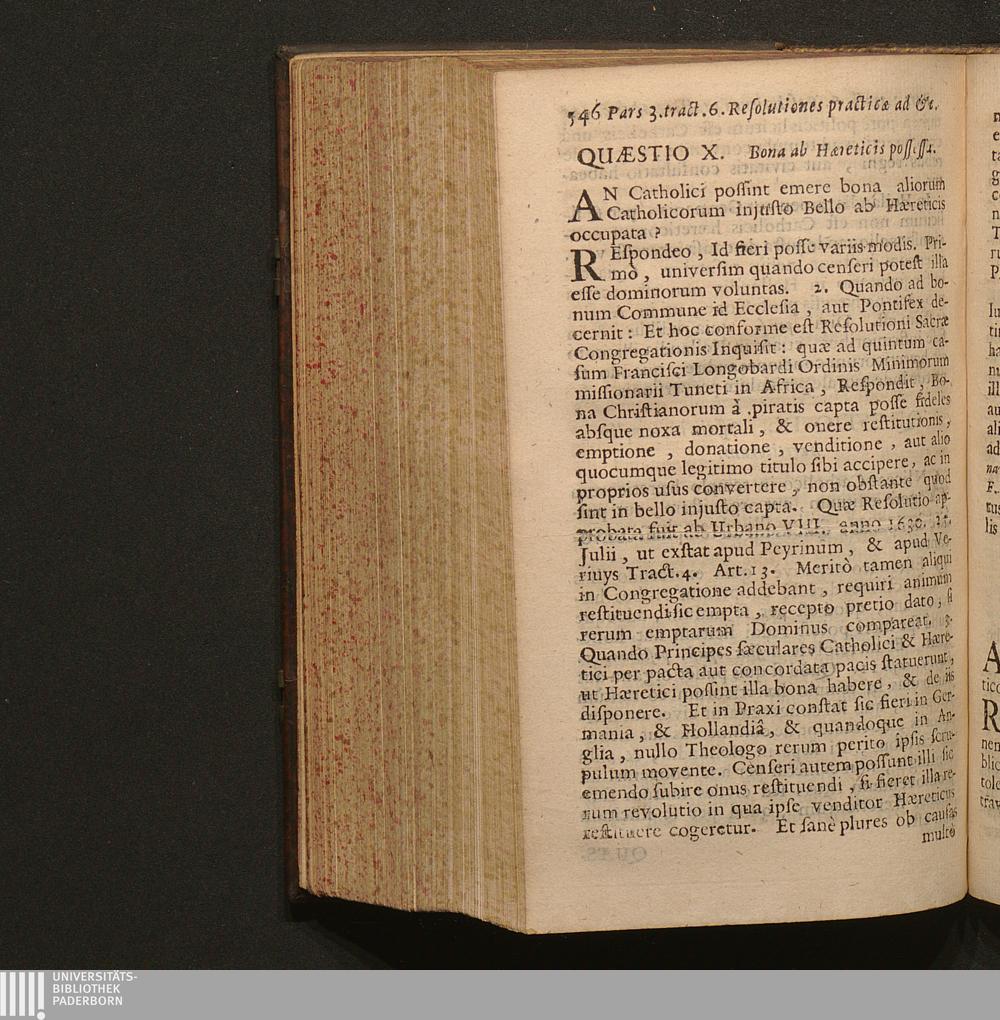 546 Pars 3. tract. 6. Resolutiones practicæ ad &c.
QUÆSTIO X. Bona ab Hæreticis possessa.
AN Catholici possint emere bona aliorum
Catholicorum injusto Bello ab Hæreticis
occupata?
REspondeo, Id fieri posse variis modis. Pri-
mò, universim quando censeri potest illa
esse dominorum voluntas. 2. Quando ad bo-
num Commune id Ecclesia, aut Pontifex de-
cernit: Et hoc conforme est Resolutioni Sacræ
Congregationis Inquisit: quæ ad quintum ca-
sum Francisci Longobardi Ordinis Minimorum
missionarii Tuneti in Africa, Respondit, Bo-
na Christianorum à piratis capta posse fideles
absque noxa mortali, & onere restitutionis,
emptione, donatione, venditione, aut alio
quocumque legitimo titulo sibi accipere, ac in
proprios usus convertere, non obstante quod
sint in bello injusto capta. Quæ Resolutio ap-
probata fuit ab Urbano VIII. anno 1630.
Julii, ut exstat apud Peyrinum, & apud Ve-
riuys Tract. 4. Art. 13. Meritò tamen aliqui
in Congregatione addebant, requiri animum
restituendi sic empta, recepto pretio dato, si
rerum emptarum Dominus compareat. 3.
Quando Principes sæculares Catholici & Hære-
tici per pacta aut concordata pacis statuerunt,
ut Hæretici possint illa bona habere, & de iis
disponere. Et in Praxi constat sic fieri in Ger-
mania, & Hollandiâ, & quandoque in An-
glia, nullo Theologo rerum perito ipsis scru-
pulum movente. Censeri autem possunt illi sic
emendo subire onus restituendi, si fieret illa re-
rum revolutio in qua ipse venditor Hæreticus
restituere cogeretur. Et sanè plures ob causas
multò
UNIVERSITÄTS-
BIBLIOTHEK
PADERBORN